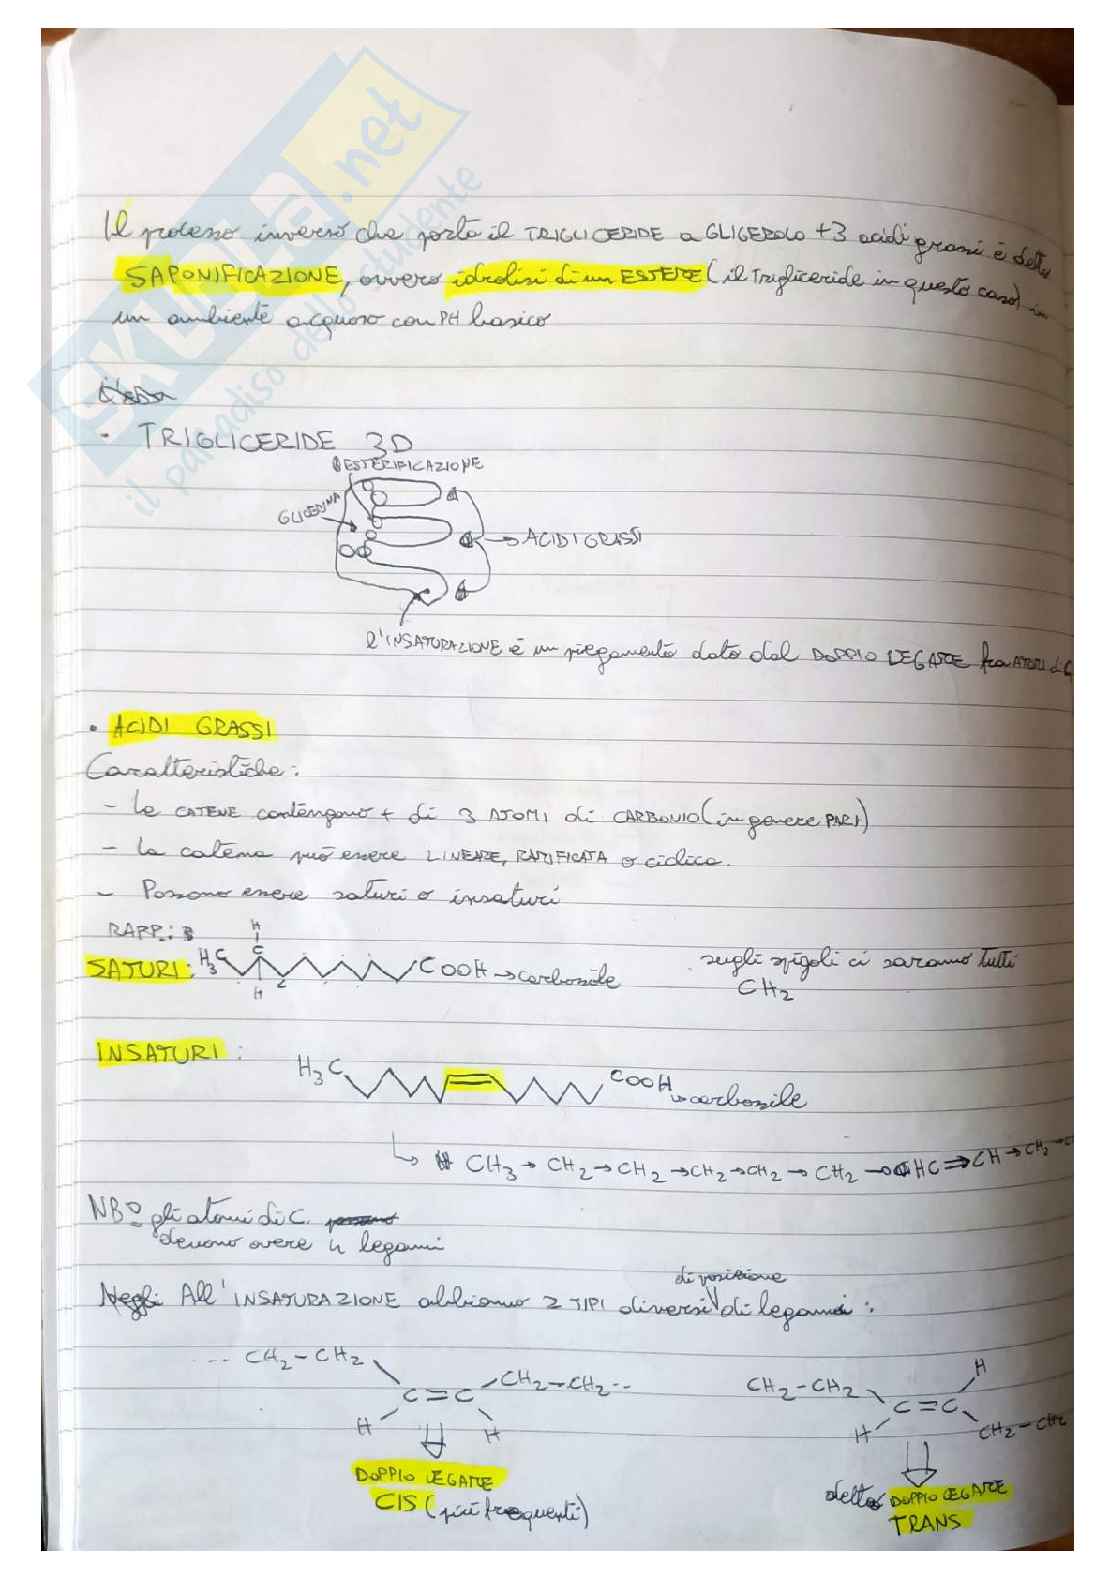 Il processo inverso che porta il TRIGLICERIDE a GLICEROLO + 3 acidi grassi è detto
SAPONIFICAZIONE, ovvero idrolisi di un ESTERE (il Trigliceride in questo caso) in
un ambiente acquoso con PH basico
• TRIGLICERIDE 3D
ESTERIFICAZIONE
GLICERINA
→ ACIDI GRASSI
L'INSATURAZIONE è un piegamento dato dal DOPPIO LEGAME fra ATOMI di C
• ACIDI GRASSI
Caratteristiche:
- Le CATENE contengono + di 3 ATOMI di CARBONIO (in genere PARI)
- La catena può essere LINEARE, RAMIFICATA o ciclica.
- Possono essere saturi o insaturi
RAPP.:
H
SATURI: H3C C COOH → carbossile
H
sugli spigoli ci saranno tutti
CH2
INSATURI:
H3C COOH → carbossile
↳ CH3 → CH2 → CH2 → CH2 → CH2 → CH2 → HC ⇒ CH → CH2 → C
NB: gli atomi di C
devono avere 4 legami
di posizione
All'INSATURAZIONE abbiamo 2 TIPI diversi di legami:
... CH2 - CH2
C = C CH2 - CH2 ...
H H
DOPPIO LEGAME
CIS (più frequenti)
H
CH2 - CH2
C = C
H CH2 - CH2
detto DOPPIO LEGAME
TRANS
SKUOLA.net
il paradiso dello studente